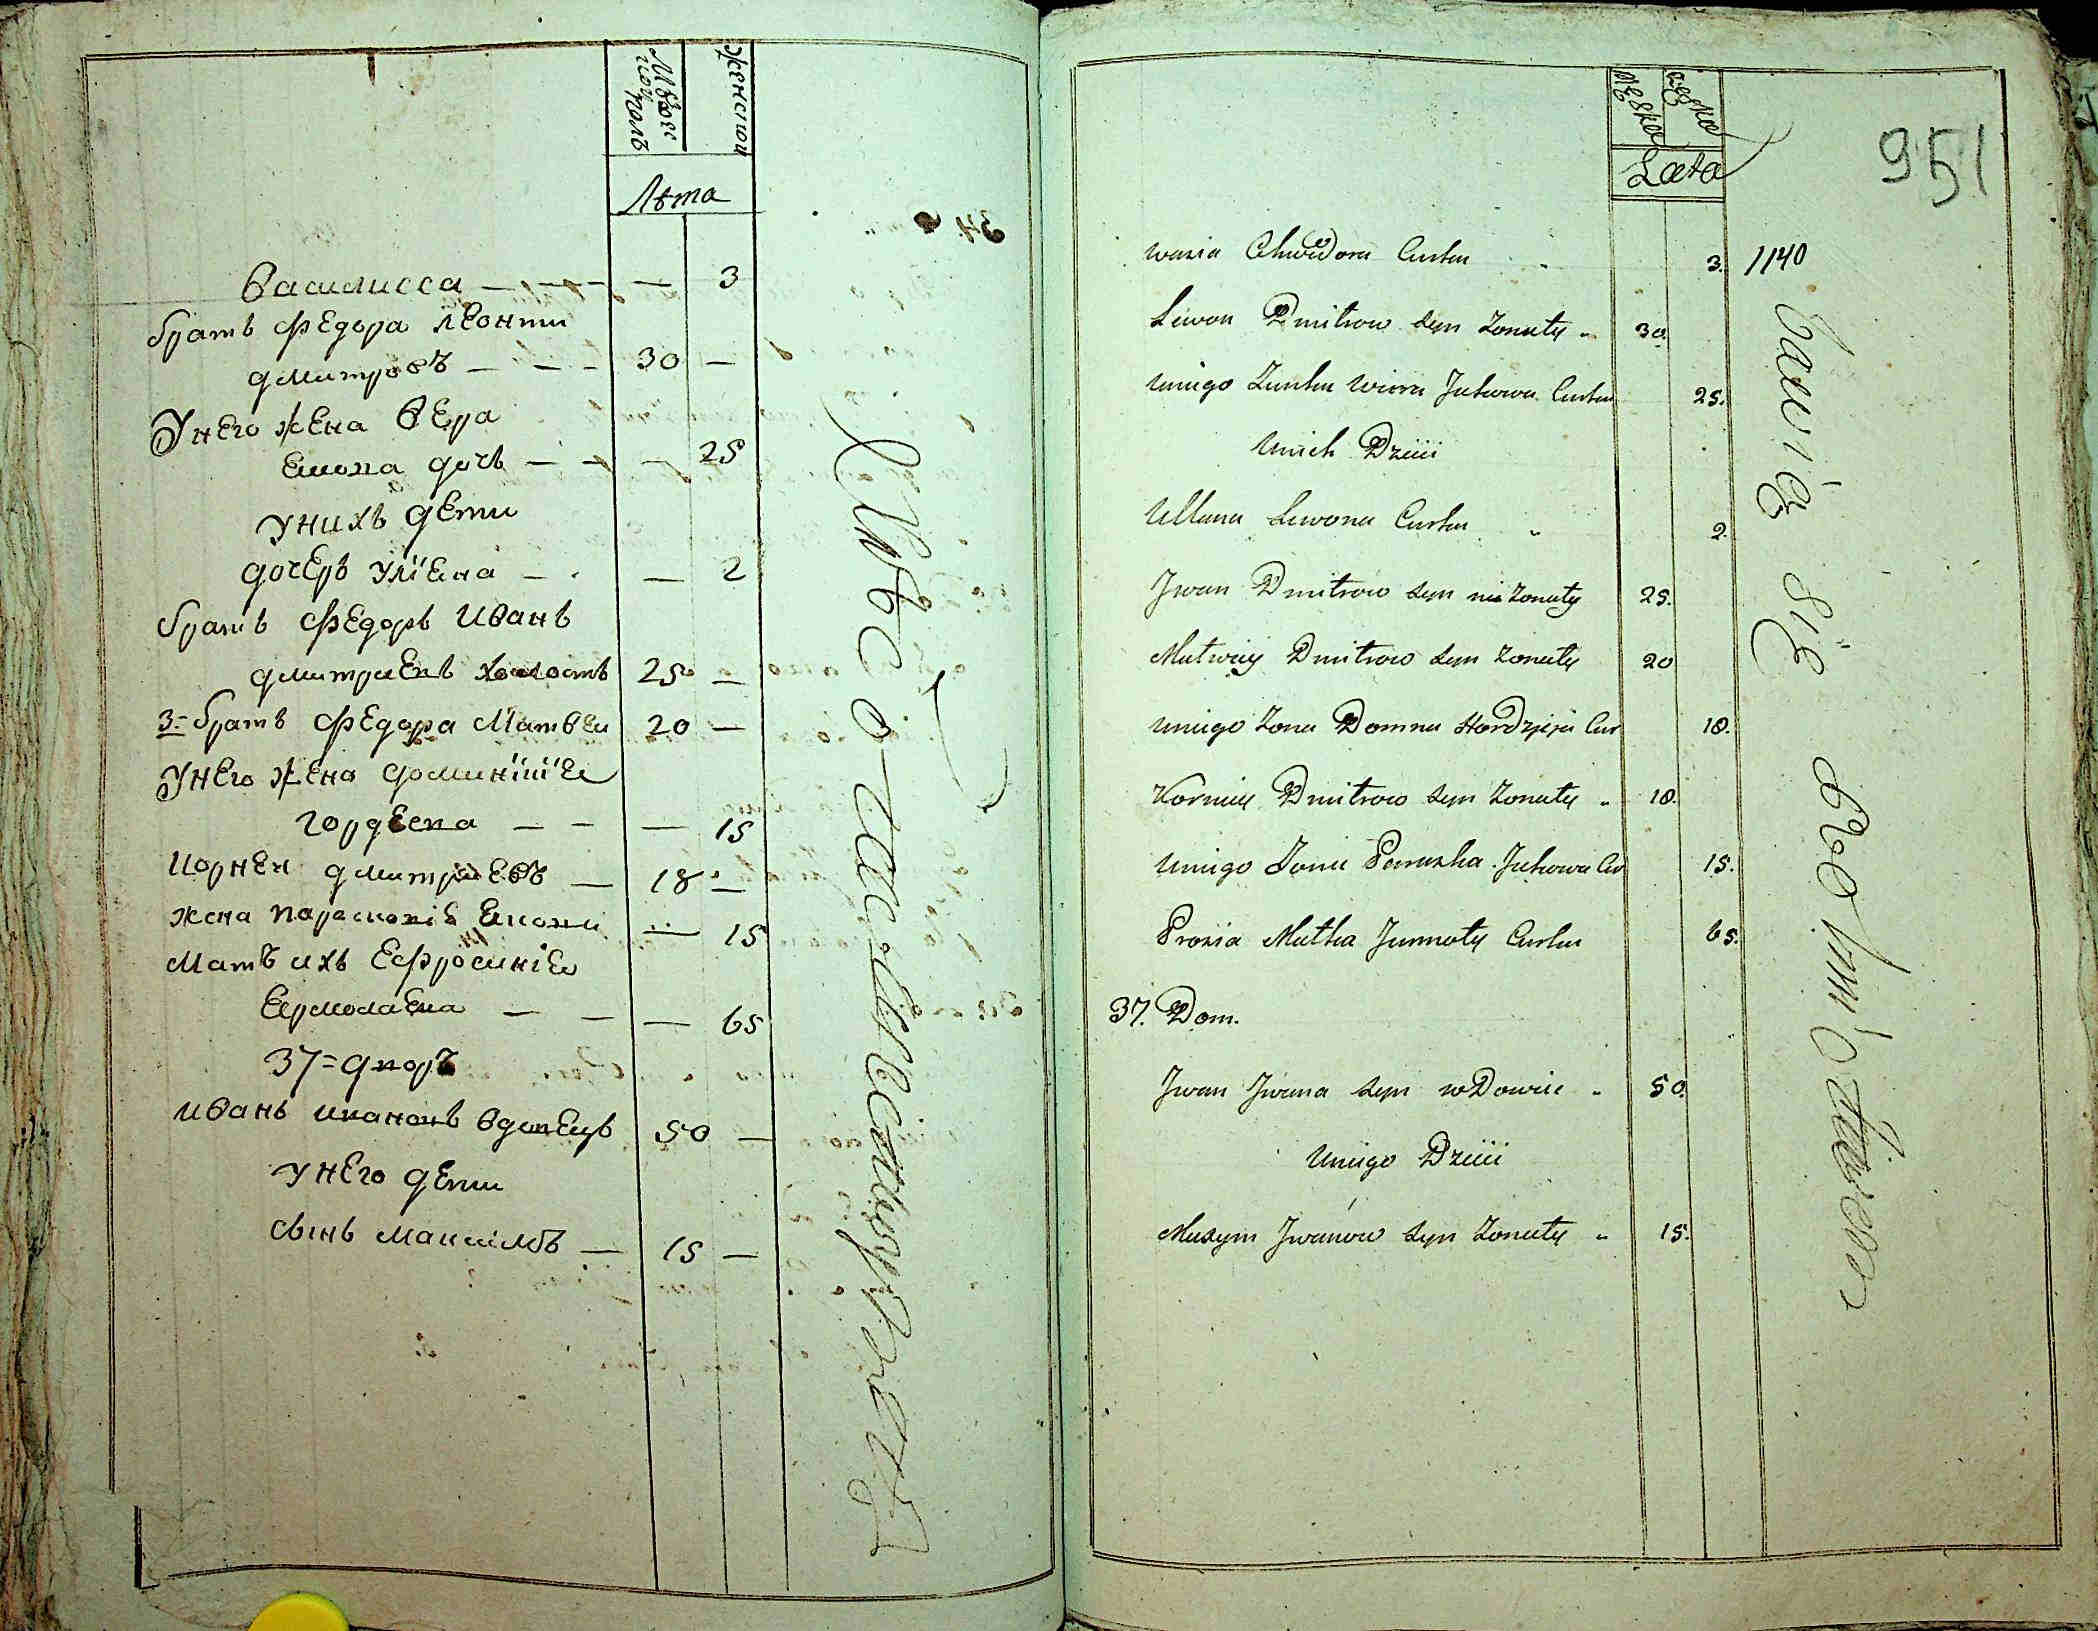 Мужес
кой полъ
Женской
Лѣта
Василисса — — — — 3
братъ Федора Леонти
Дмитровъ — — — 30 —
У него жена Вера
Якова дочь — — — 25
У нихъ дети
дочеръ Улiена — — 2
братъ Федоръ Иванъ
Дмитриевъ холостъ 25 —
3= братъ Федора Матвеи 20 —
У него жена
Гордеева — — — 15
Корнеи Дмитриевъ — 18 —
жена Парасковiя — 15
Мать ихъ Ефросинiея
Ермолаева — — — 65
37= Дворъ
Иванъ Ивановъ вдовецъ 50 —
У него дети
сынъ Максiмъ — 15 —
Męska
Zęska
Lata
951
wasia Chwedora Curka 3. 1140
Liwon Dmitrow syn Zonaty 30.
Uniego Zonka Wiera Jakowa Curka 25.
Unich Dzieii
Ullana Liwona Curka 2.
Jwan Dmitrow syn nie Zonaty 25.
Matwiey Dmitrow syn Zonaty 20
Uniego Zona Domna Hordzieja Cur 18.
Korniey Dmitrow syn Zonaty 18.
Uniego Zona Paraska Jakowa Cur 15.
Prosia Matka Curka 65.
37. Dom.
Jwan Jwana syn wDowiec 50.
Uniego Dzieii
Maxym Jwanow syn Zonaty 15.